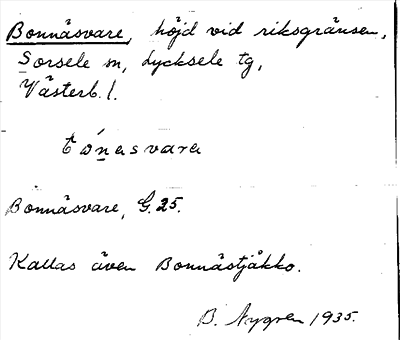 Bonnäsvare, höjd vid riksgränsen,
Sorsele sn, Lycksele tg,
Västerb. l.
Bonnäsvare, G. 25.
Kallas även Bonnästjåkko.
B. Nygren 1935.